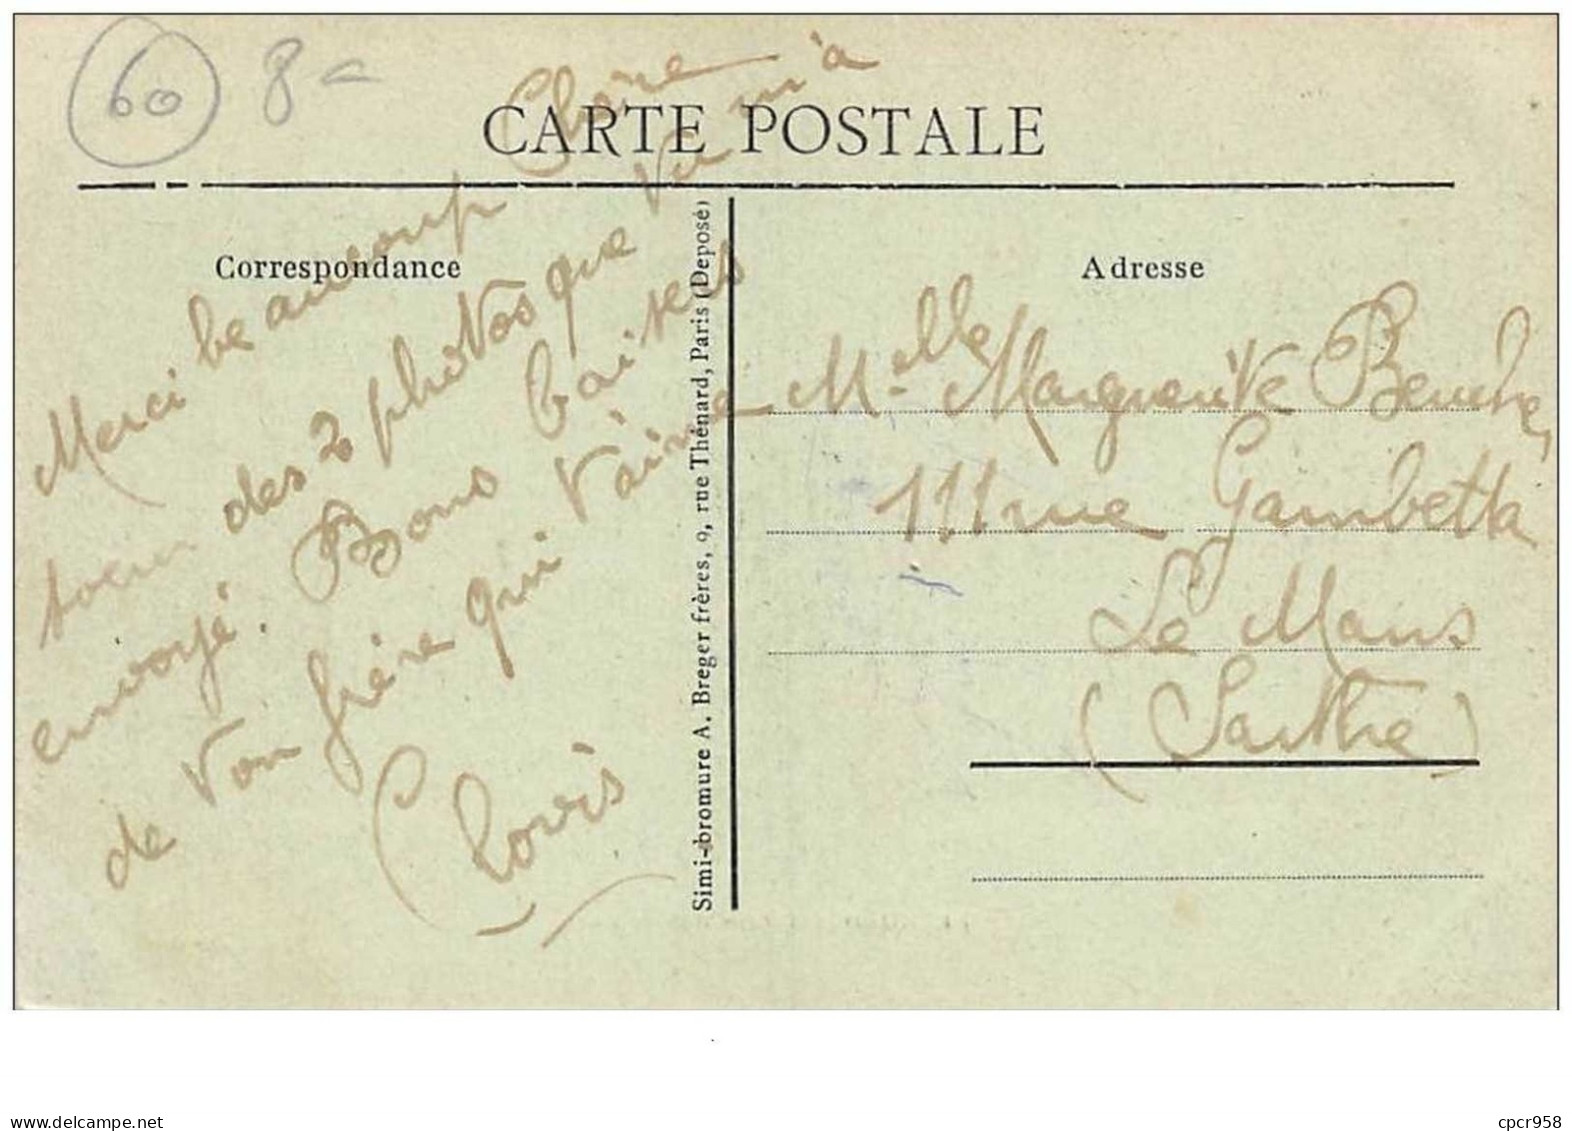 60 8 -
CARTE POSTALE
Correspondance
Adresse
Merci beaucoup Chère
soeur des 2 photos que tu m'a
envoyé. Bons baisers
de ton frère qui t'aime
Clovis
Simi-bromure A. Breger frères, 9, rue Thénard, Paris (Déposé)
Melle Marguerite
111 rue Gambetta
Le Mans
(Sarthe)
www.delcampe.net
cpcr958